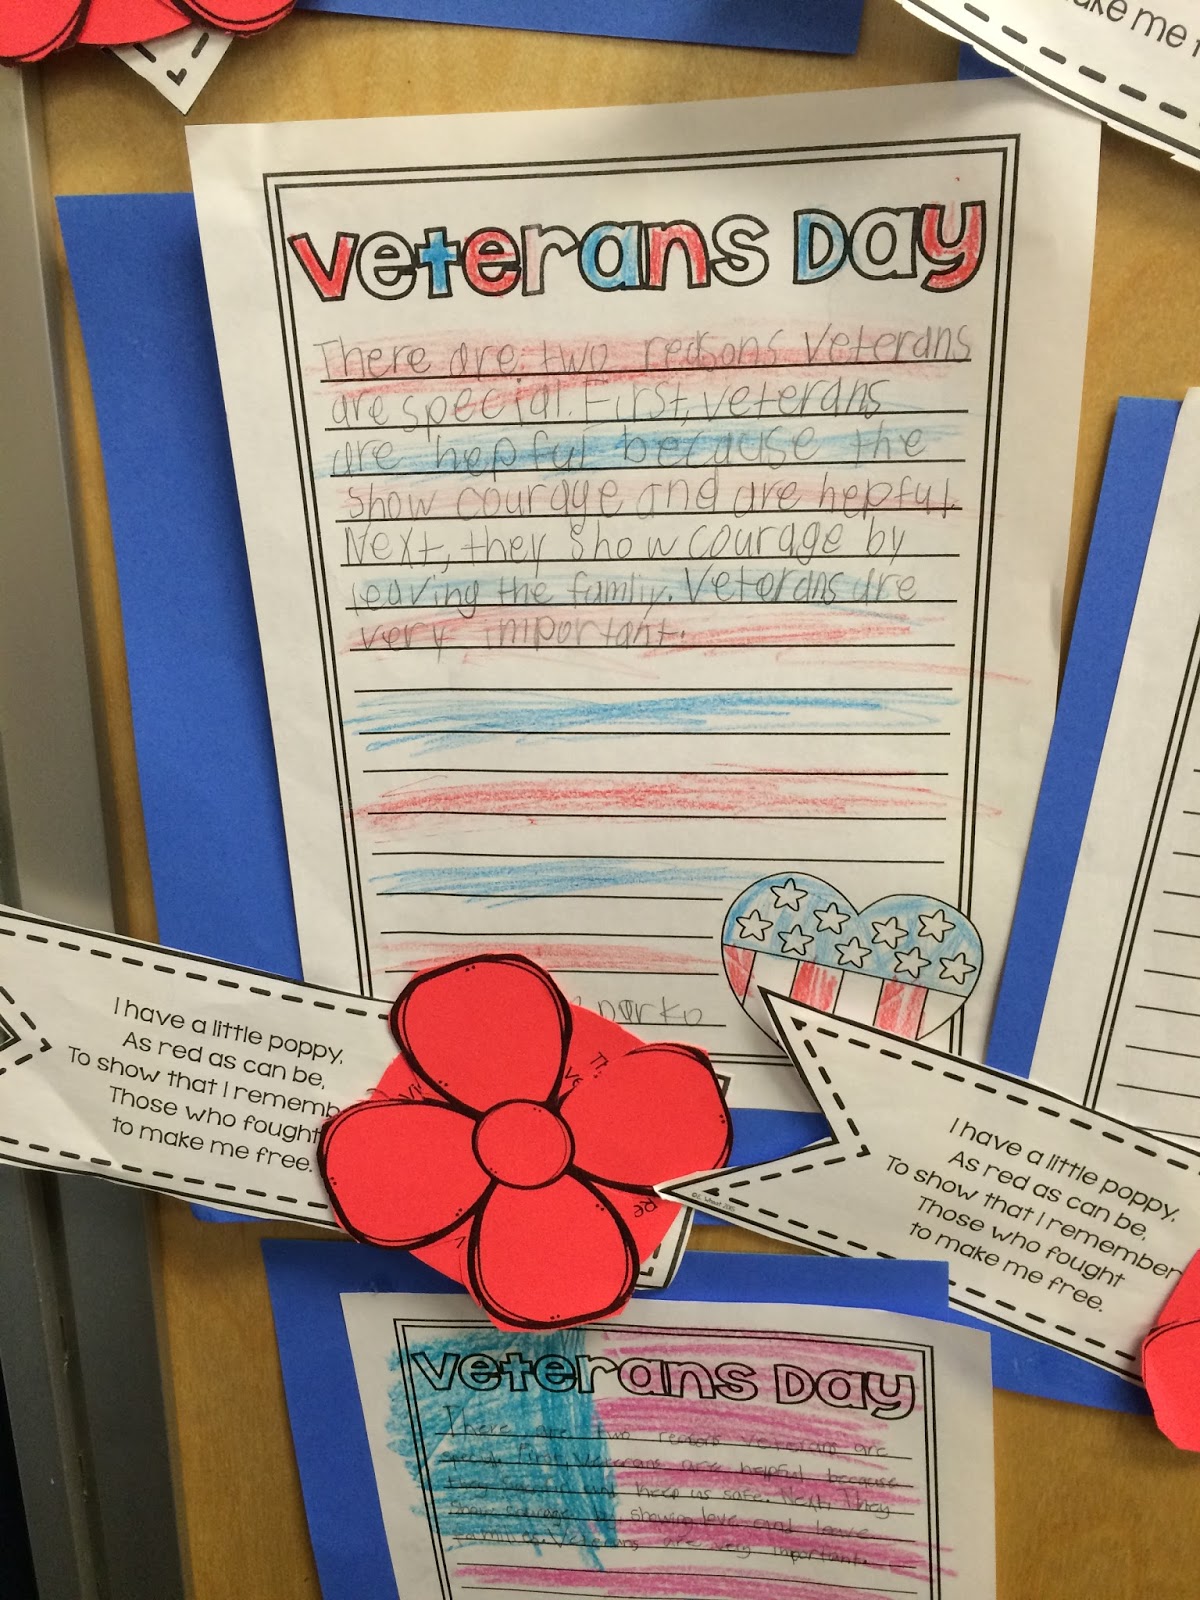 ake me f
Veterans Day
There are two reasons Veterans
are special. First, veterans
are hepful because the
show courage and are hepful.
Next, they show courage by
leaving the famliy. Veterans are
very important.
Darko
I have a little poppy,
As red as can be,
To show that I rememb
Those who fought
to make me free.
I have a little poppy,
As red as can be,
To show that I remember
Those who fought
to make me free.
Veterans Day
There are two reasons veterans are
special. First, Veterans are helpful because
they and keep us safe. Next, They
show courage by showing love and leave
Veterans are very important.